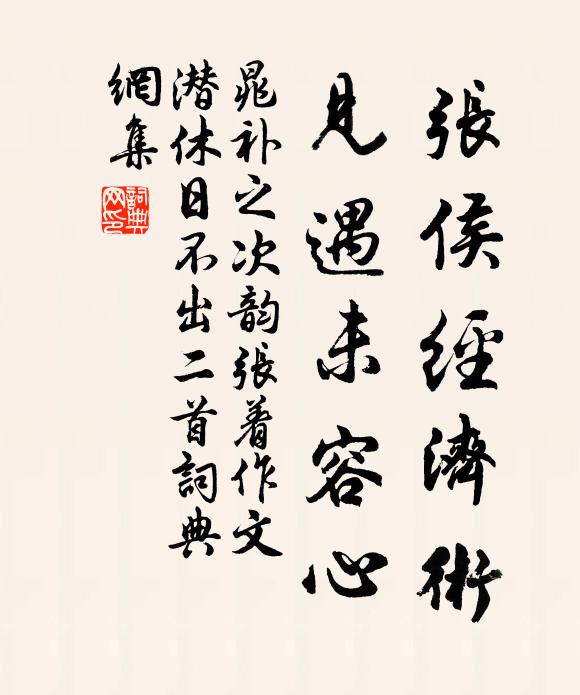 張侯經濟術
見遇未容心
晁补之次韵張着作文
潜休日不出二首詞典
網集
詞典
网印